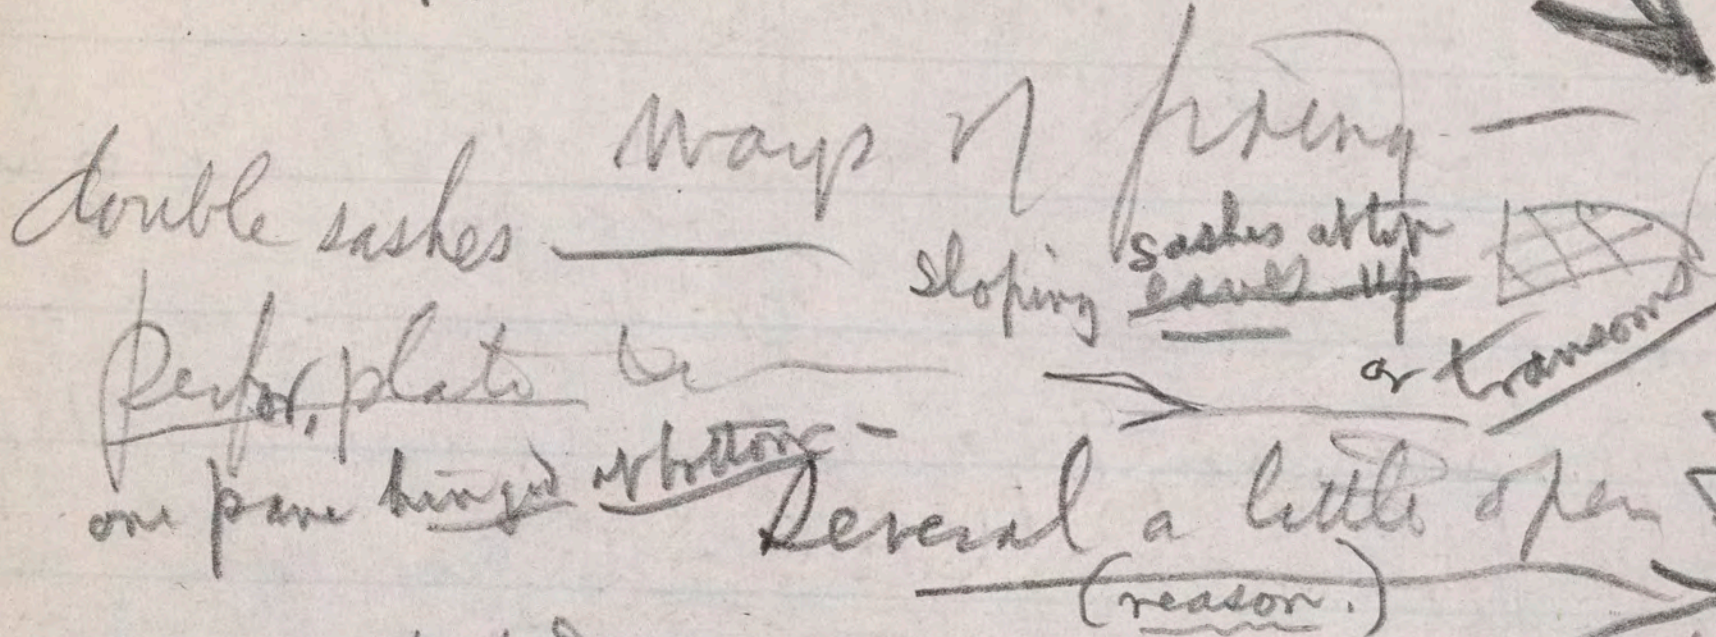 Ways of fixing —
double sashes —
sloping sashes at top
eaves up
or transoms
Perfor. plate
one pane hinged at bottom —
Several a little open
(reason.)